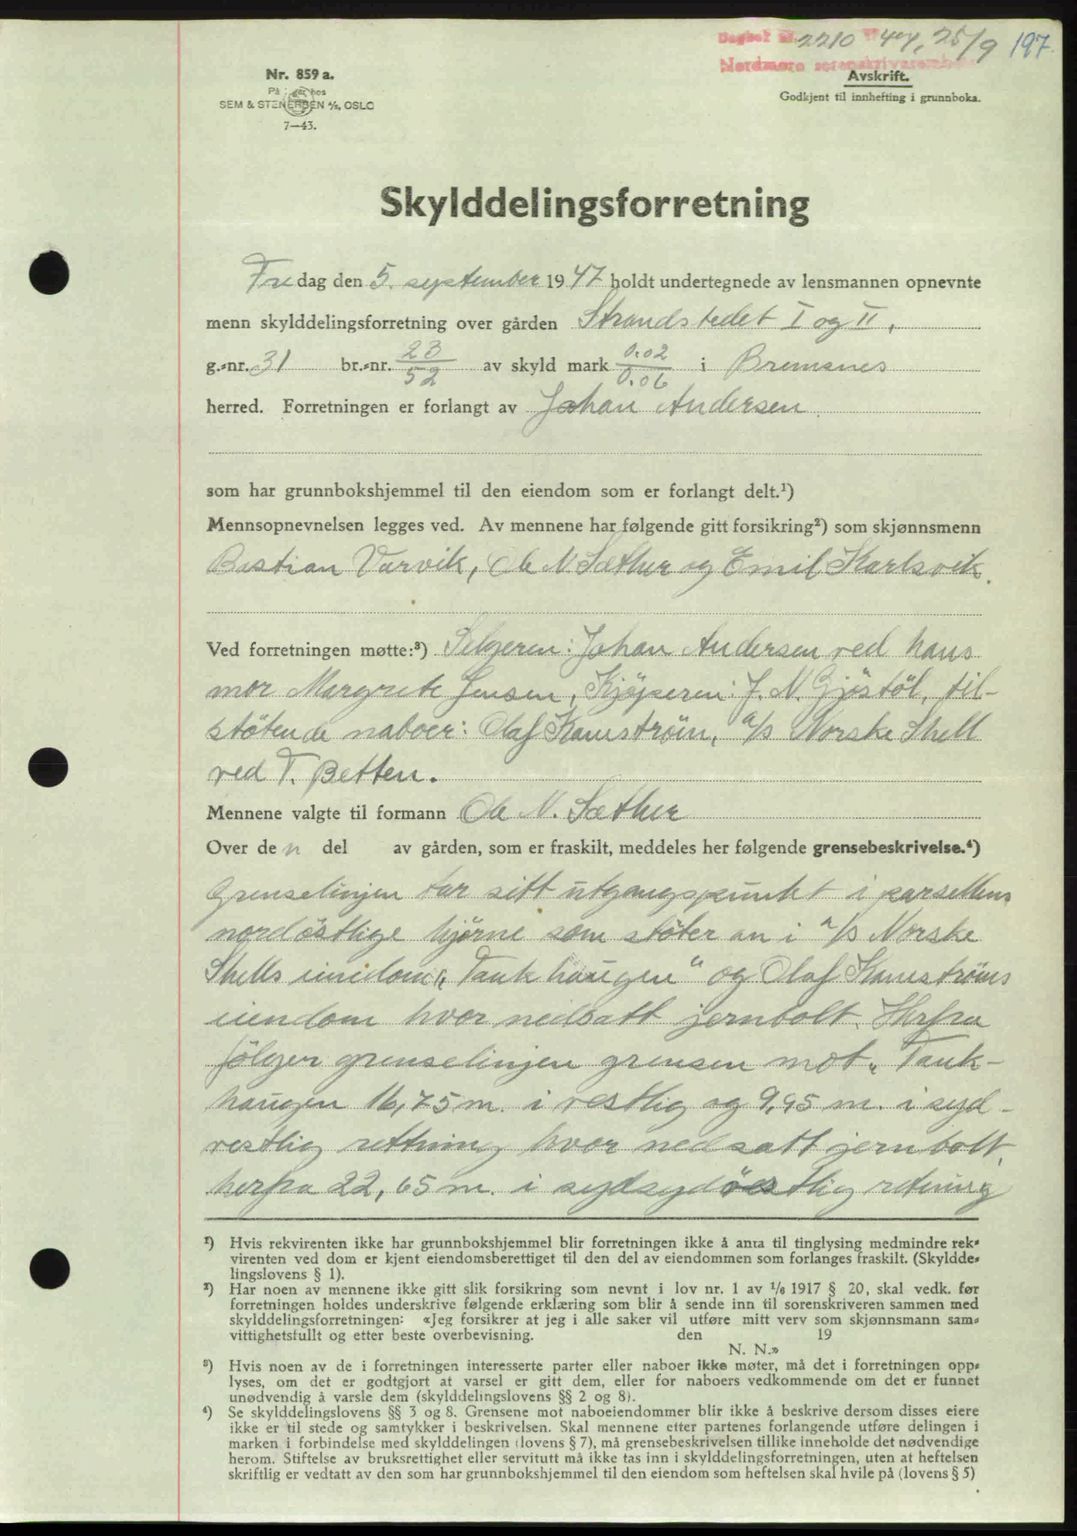 Dagbok nr. 2210 1947, 25/9 197
Nordmøre sorenskriverembete
Nr. 859 a.
På lager hos
SEM & STENERSEN A/S, OSLO
7—43.
Avskrift.
Godkjent til innhefting i grunnboka.
Skylddelingsforretning
Fredag den 5. september 1947 holdt undertegnede av lensmannen opnevnte
menn skylddelingsforretning over gården Strandstedet I og II,
g.-nr. 31 br.-nr. 23/52 av skyld mark 0.02/0.06 i Bremsnes
herred. Forretningen er forlangt av Johan Andersen
som har grunnbokshjemmel til den eiendom som er forlangt delt.¹)
Mennsopnevnelsen legges ved. Av mennene har følgende gitt forsikring²) som skjønnsmenn
Bastian Varvik, Ole N. Sæther og Emil Karlsvik.
Ved forretningen møtte:³) Selgeren: Johan Andersen ved hans
mor Margrete Jensen, Kjøperen: J. N. Gjöstöl, til-
støtende naboer: Olaf Kamstrøm, a/s Norske Shell
ved T. Betten.
Mennene valgte til formann Ole N. Sæther
Over den del av gården, som er fraskilt, meddeles her følgende grensebeskrivelse.⁴)
Grenselinjen tar sitt utgangspunkt i parsellens
nordöstlige hjørne som støter an i a/s Norske
Shells eiendom „Tankhaugen" og Olaf Kamstrøms
eiendom hvor nedsatt jernbolt. Herfra
følger grenselinjen grensen mot „Tank-
haugen 16,75 m. i vestlig og 9,95 m. i syd-
vestlig rettning hvor nedsatt jernbolt,
herfra 22,65 m. i sydsydöstlig retning
¹) Hvis rekvirenten ikke har grunnbokshjemmel blir forretningen ikke å anta til tinglysing medmindre rek-
virenten ved dom er kjent eiendomsberettiget til den del av eiendommen som forlanges fraskilt. (Skyldde-
lingslovens § 1).
²) Har noen av mennene ikke gitt slik forsikring som nevnt i lov nr. 1 av 1/6 1917 § 20, skal vedk. før
forretningen holdes underskrive følgende erklæring som blir å sende inn til sorenskriveren sammen med
skylddelingsforretningen: «Jeg forsikrer at jeg i alle saker vil utføre mitt verv som skjønnsmann sam-
vittighetsfullt og etter beste overbevisning. den 19
N. N.»
³) Hvis noen av de i forretningen interesserte parter eller naboer ikke møter, må det i forretningen opp-
lyses, om det er godtgjort at varsel er gitt dem, eller for naboers vedkommende om det er funnet
unødvendig å varsle dem (skylddelingslovens §§ 2 og 8).
⁴) Se skylddelingslovens §§ 3 og 8. Grensene mot naboeiendommer blir ikke å beskrive dersom disses eiere
ikke er til stede og samtykker i beskrivelsen. Skal mennene etter partenes forlangende utføre delingen i
marken i forbindelse med skylddelingen (lovens § 7), må grensebeskrivelsen tillike inneholde det nødvendige
herom. Stiftelse av bruksrettighet eller servitutt må ikke tas inn i skylddelingsforretningen, uten at heftelsen
skriftlig er vedtatt av den som har grunnbokshjemmel til den eiendom som heftelsen skal hvile på (lovens § 5)